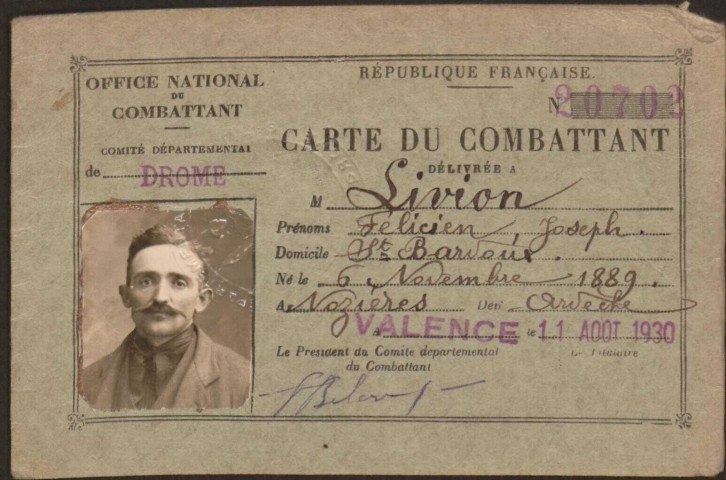 OFFICE NATIONAL
DU
COMBATTANT
COMITÉ DÉPARTEMENTAL
de DROME
RÉPUBLIQUE FRANÇAISE.
N° 20702
CARTE DU COMBATTANT
DÉLIVRÉE A
M Livion
Prénoms Félicien, Joseph.
Domicile St Bardoux.
Né le 6 Novembre 1889.
A Nozières Dépt Ardèche
à VALENCE le 11 AOUT 1930
Le President du Comite departemental
du Combattant
Le Titulaire